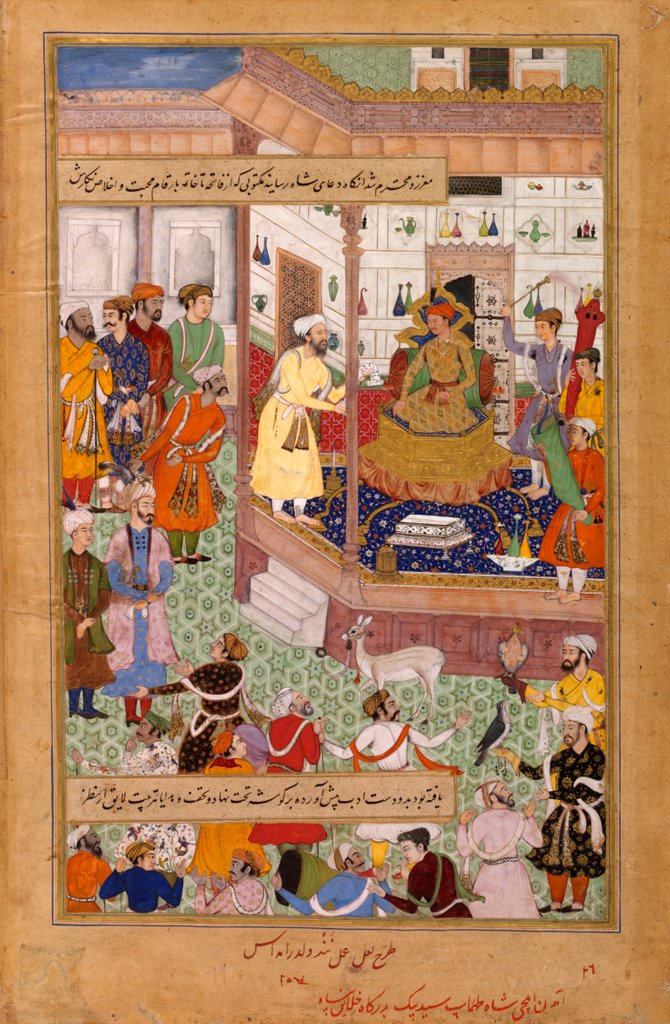 معزز و محترم شد آنگاه دعای شاه رسانید مکتوبی که از فاتحه تا خاتمه بارقام محبت و اخلاص نگارش
یافته بود بدو دست ادب پیش آورده بر گوشه تخت نهاد و تحف و هدایا بترتیب لایق از نظر
طرح لعل عمل نند ولد رامداس
۲۶
آمدن ایلچی شاه طهماسب سید بیک بدرگاه